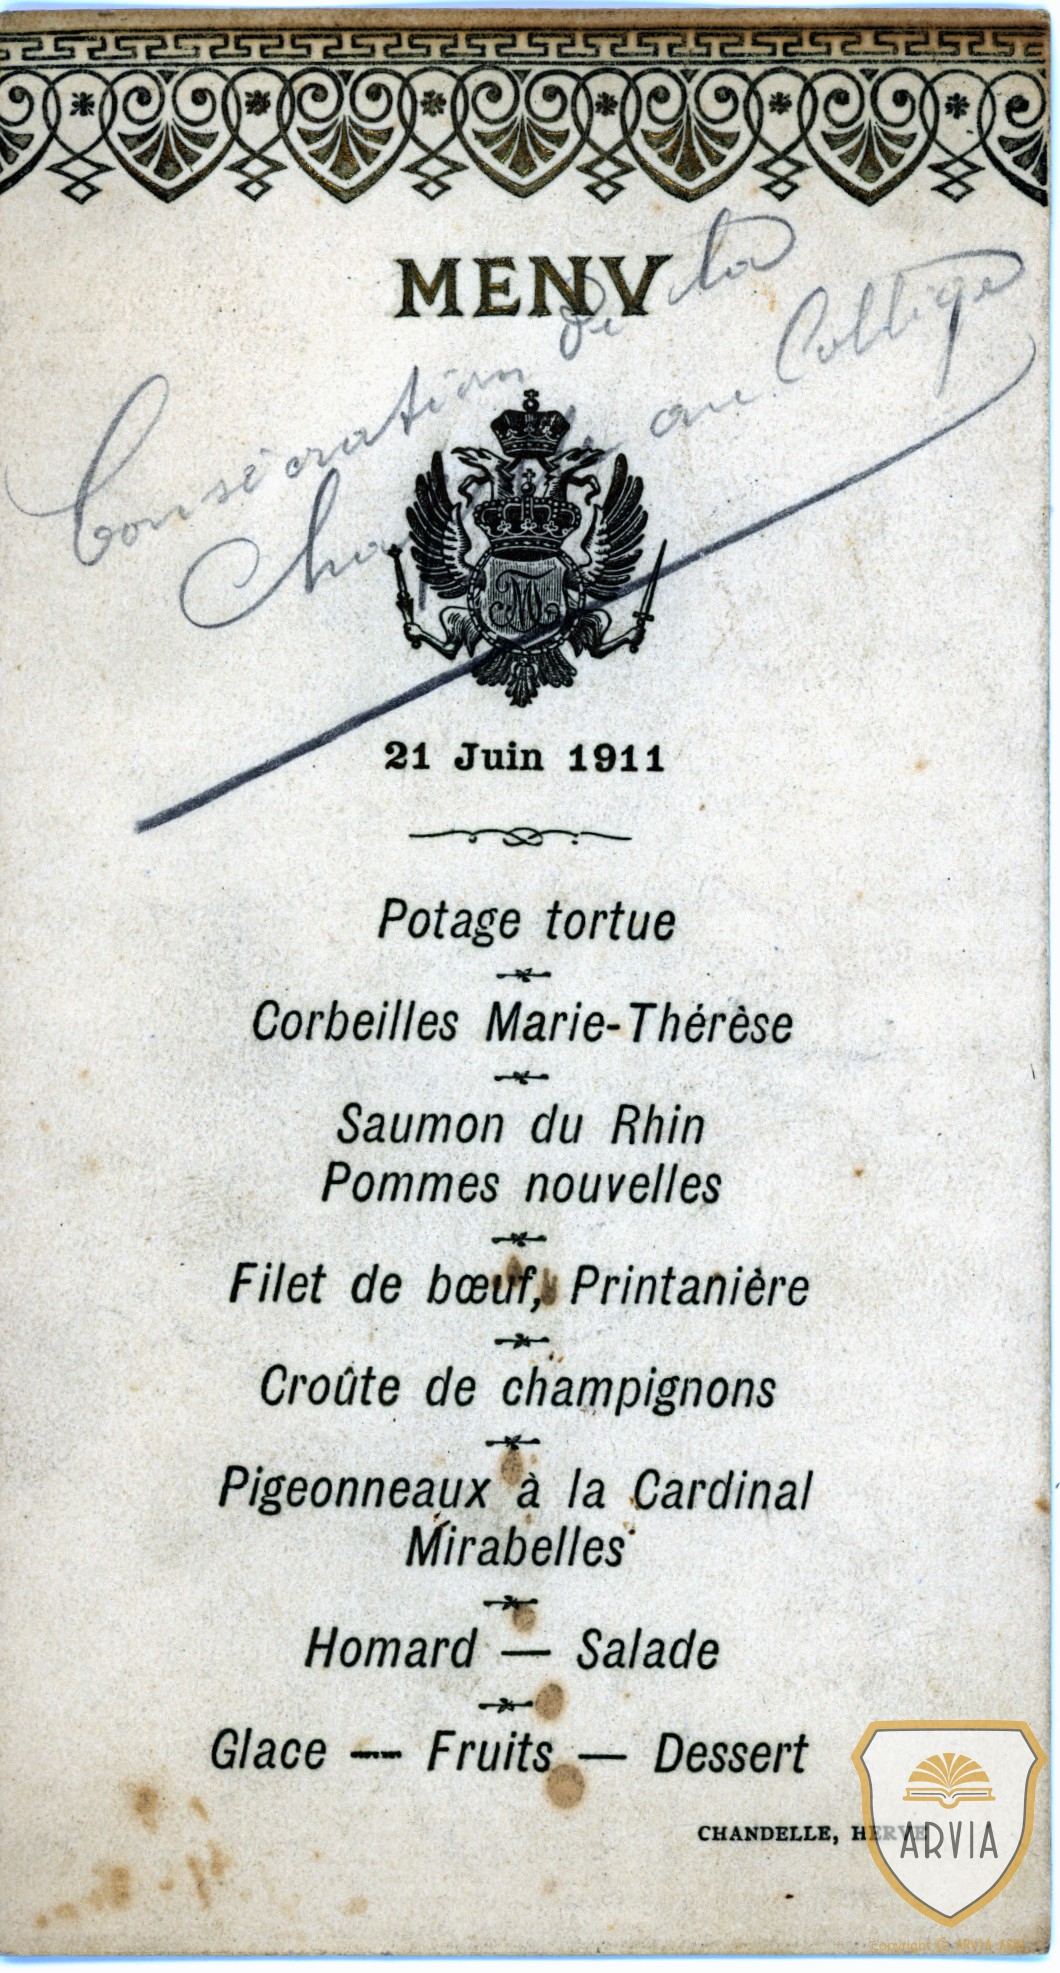 MENV
Consécration de la
Chapelle au Collège
MT
21 Juin 1911
Potage tortue
Corbeilles Marie-Thérèse
Saumon du Rhin
Pommes nouvelles
Filet de bœuf, Printanière
Croûte de champignons
Pigeonneaux à la Cardinal
Mirabelles
Homard — Salade
Glace — Fruits — Dessert
CHANDELLE, HERVE
ARVIA
copyright © ARVIA